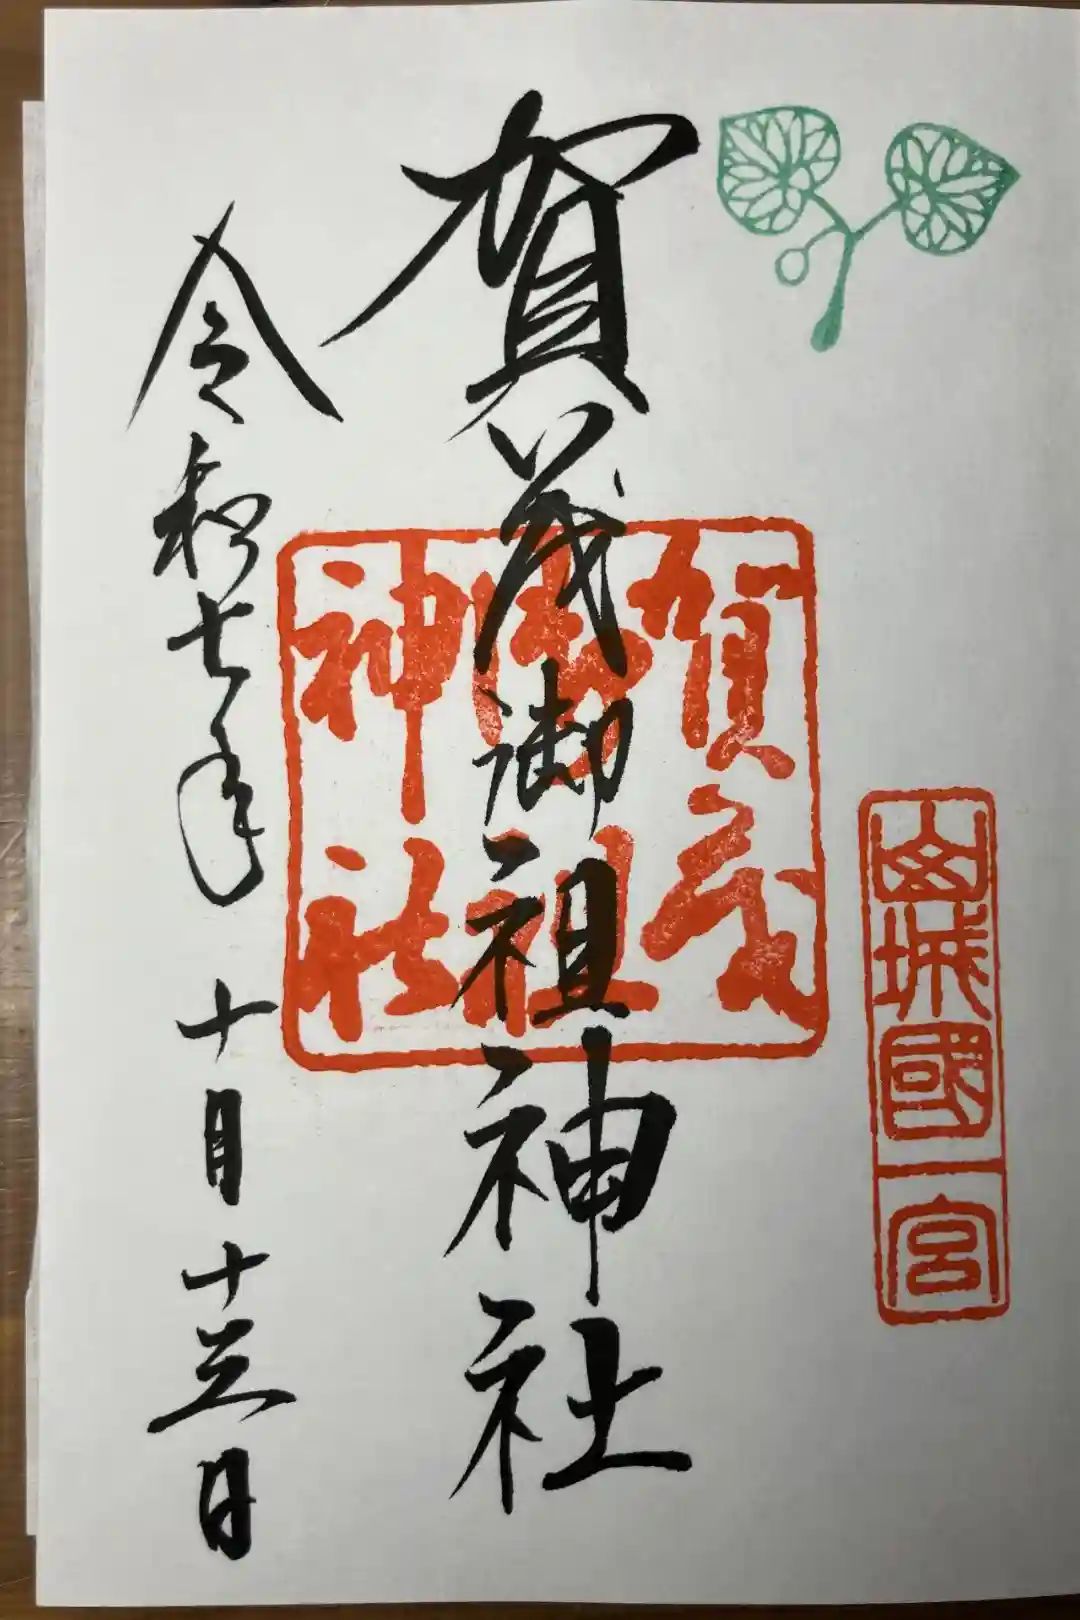 山城國一宮
賀茂御祖神社
賀茂
御祖
神社
令和七年 十月 十三日